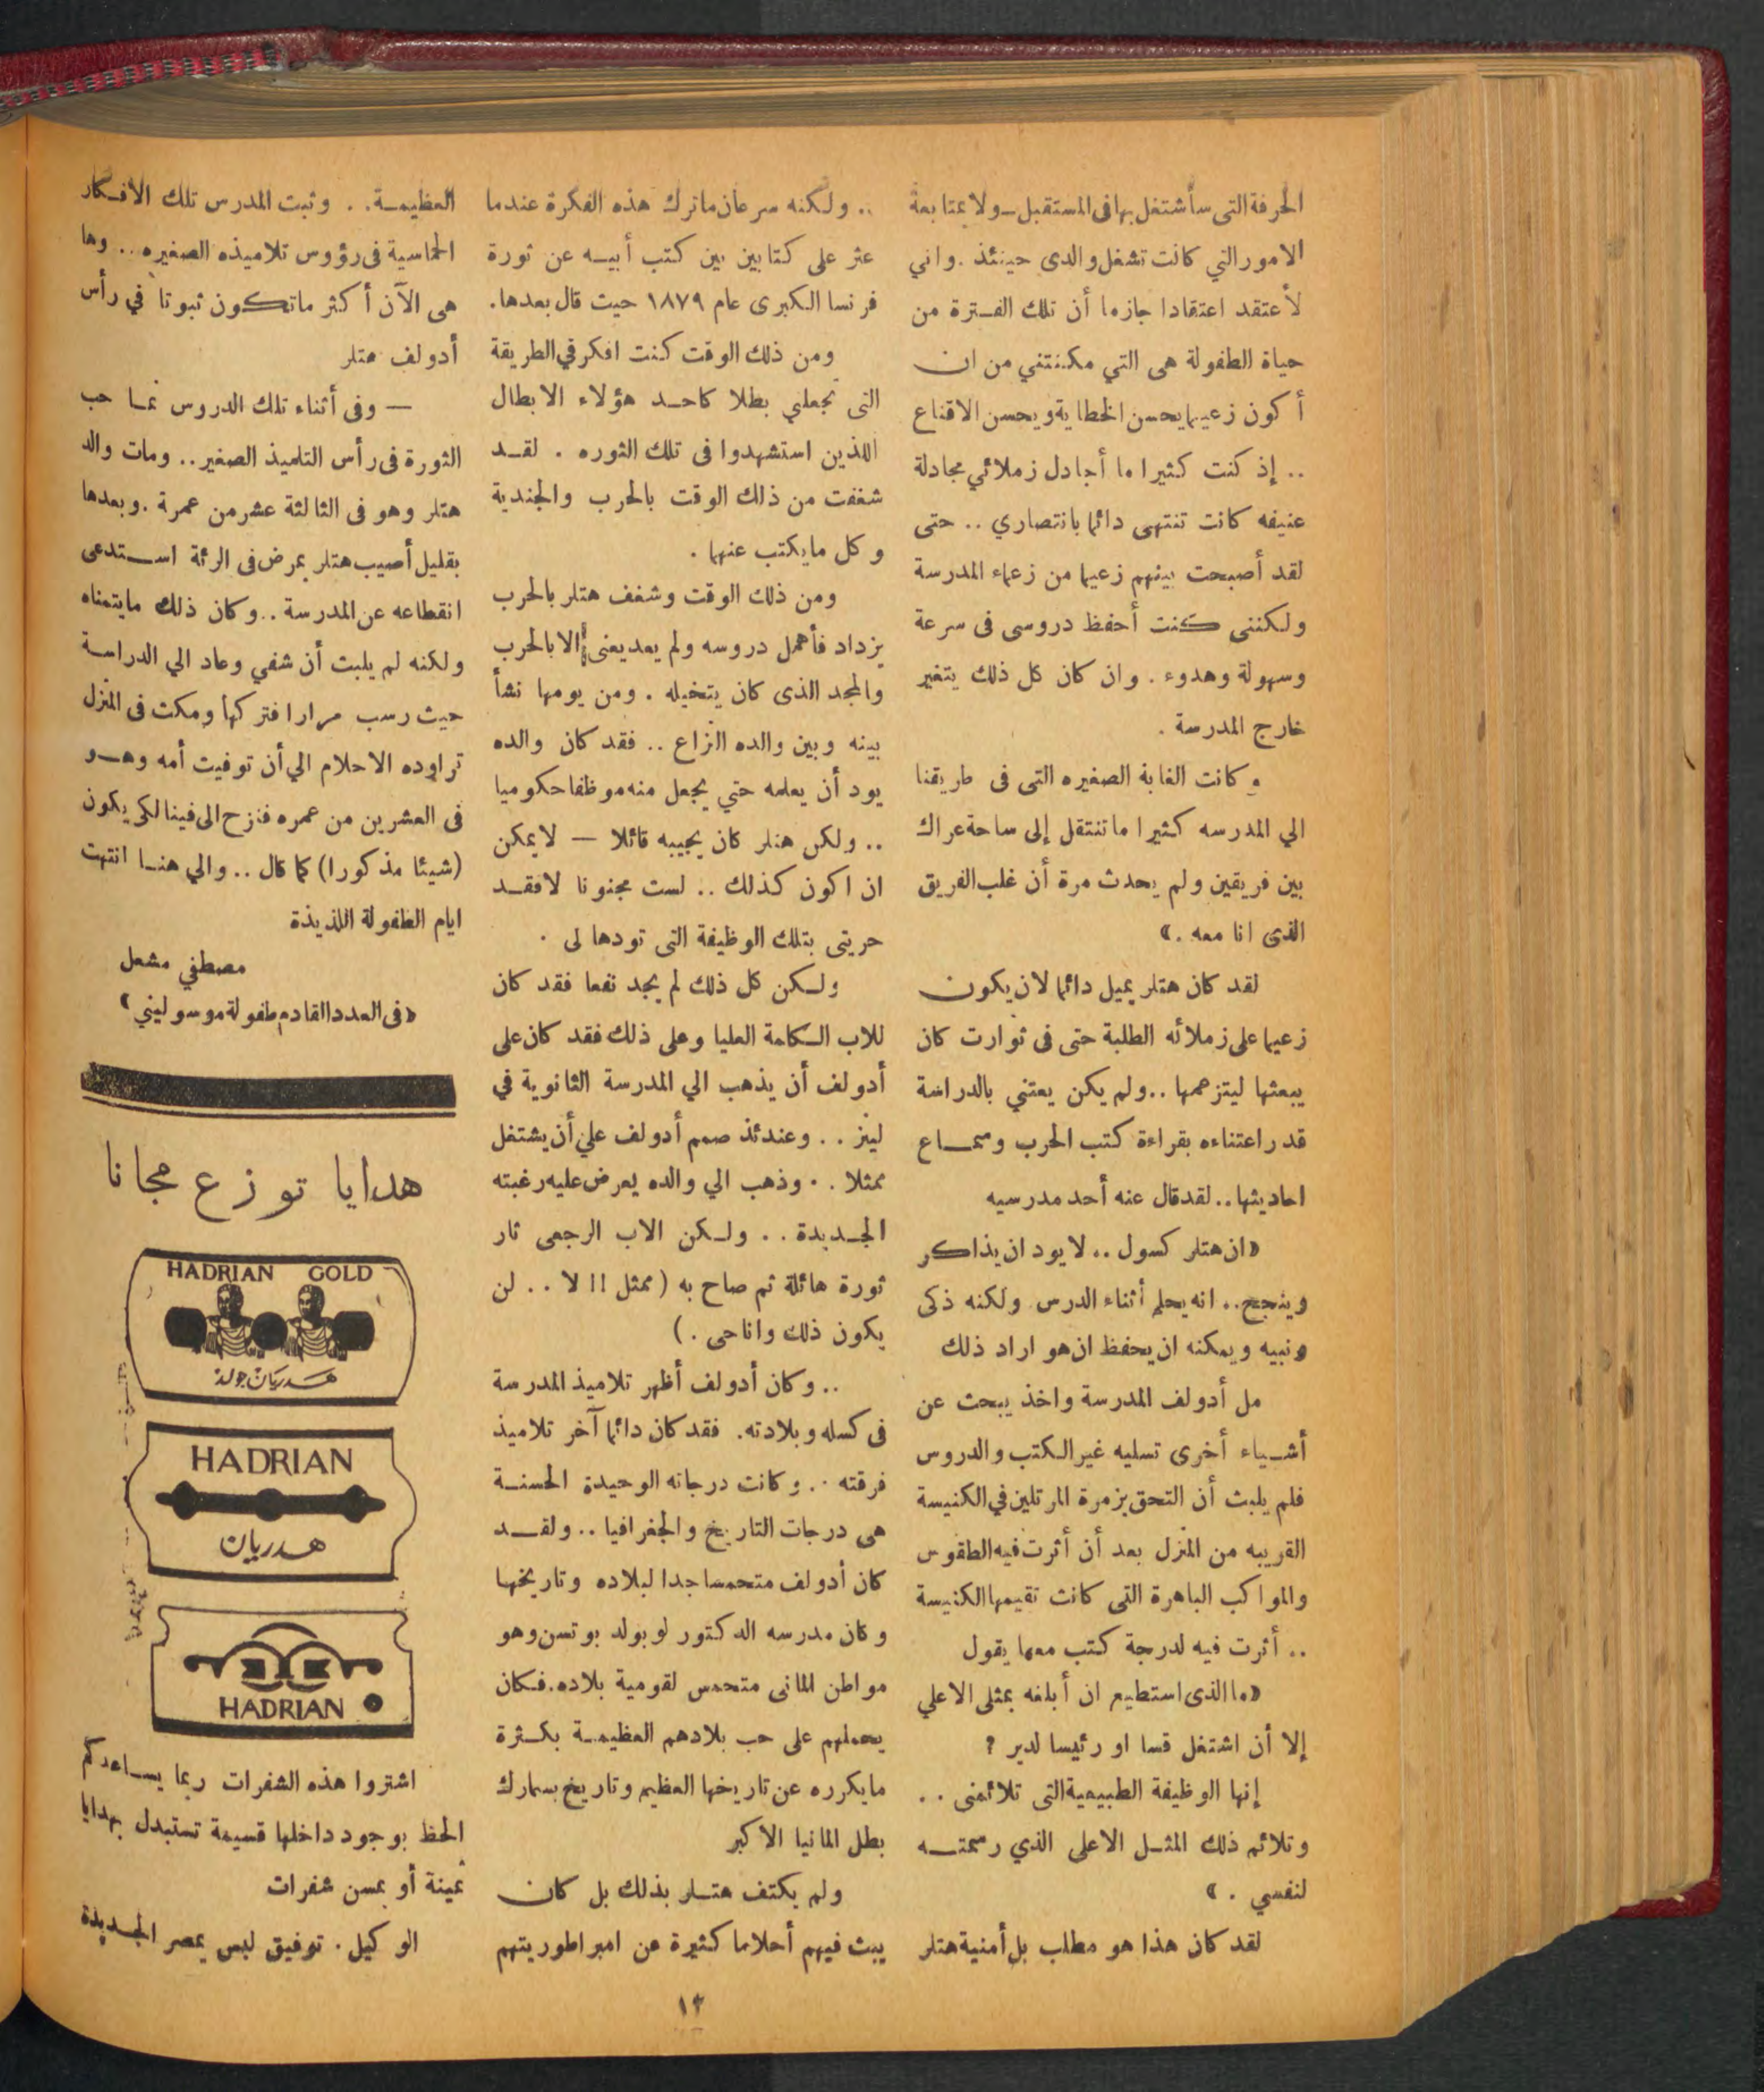 الحرفة التى سأشتغل بها فى المستقبل ــ ولا بمتابعة
الامور التي كانت تشغل والدى حينئذ . واني
لأعتقد اعتقادا جازما أن تلك الفـترة من
حياة الطفولة هى التي مكنتني من ان
أكون زعيما يحسن الخطاية ويحسن الاقناع
.. إذ كنت كثيرا ما أجادل زملائي مجادلة
عنيفه كانت تنتهى دائما بانتصاري .. حتى
لقد أصبحت بينهم زعيما من زعماء المدرسة
ولكننى كنت أحفظ دروسى فى سرعة
وسهولة وهدوء . وان كان كل ذلك يتغير
خارج المدرسة .
وكانت الغابة الصغيره التى فى طريقنا
الي المدرسه كثيرا ما تنتقل إلى ساحة عراك
بين فريقين ولم يحدث مرة أن غلب الفريق
الذى انا معه . »
لقد كان هتلر يميل دائما لان يكون
زعيما على زملائه الطلبة حتى فى ثوارت كان
يبعثها ليتزعمها .. ولم يكن يعتني بالدراسة
قدر اعتناءه بقراءة كتب الحرب وسماع
احاديثها .. لقد قال عنه أحد مدرسيه
« ان هتلر كسول .. لا يود ان يذاكر
وينجح .. انه يحلم أثناء الدرس ولكنه ذكى
ونبيه ويمكنه ان يحفظ ان هو اراد ذلك
مل أدولف المدرسة واخذ يبحث عن
أشـياء أخرى تسليه غير الكتب والدروس
فلم يلبث أن التحق بزمرة المرتلين في الكنيسة
القريبه من المنزل بعد أن أثرت فيه الطقوس
والمواكب الباهرة التى كانت تقيمها الكنيسة
.. أثرت فيه لدرجة كتب معها يقول
« ما الذى استطيع ان أبلغه بمثلى الاعلي
إلا أن اشتغل قسا او رئيسا لدير ؟
إنها الوظيفة الطبيعية التى تلائمنى ..
وتلائم ذلك المثـل الاعلى الذي رسمتـه
لنفسي . »
لقد كان هذا هو مطلب بل أمنية هتلر
.. ولكنه سرعان ماترك هذه الفكرة عندما
عثر على كتابين بين كتب أبيـه عن ثورة
فرنسا الكبرى عام ١٨٧٩ حيث قال بعدها.
ومن ذلك الوقت كنت افكر في الطريقة
التى تجعلني بطلا كاحـد هؤلاء الابطال
اللذين استشهدوا فى تلك الثوره . لقـد
شغفت من ذلك الوقت بالحرب والجندية
وكل ما يكتب عنها .
ومن ذلك الوقت وشغف هتلر بالحرب
يزداد فأهمل دروسه ولم يعد يعنى الا بالحرب
والمجد الذى كان يتخيله . ومن يومها نشأ
بينه وبين والده النزاع .. فقد كان والده
يود أن يعلمه حتي يجعل منه موظفا حكوميا
.. ولكن هتلر كان يجيبه قائلا — لا يمكن
ان اكون كذلك .. لست مجنونا لافقـد
حريتى بتلك الوظيفة التى تودها لى .
ولكن كل ذلك لم يجد نفعا فقد كان
للاب الكلمة العليا وعلى ذلك فقد كان على
أدولف أن يذهب الي المدرسة الثانوية في
لينز .. وعندئذ صمم أدولف علي أن يشتغل
ممثلا .. وذهب الي والده يعرض عليه رغبته
الجـديدة .. ولـكن الاب الرجعى ثار
ثورة هائلة ثم صاح به ( ممثل !! لا .. لن
يكون ذلك وانا حى . )
.. وكان أدولف أظهر تلاميذ المدرسة
فى كسله وبلادته. فقد كان دائما آخر تلاميذ
فرقته .. وكانت درجاته الوحيدة الحسنـة
هى درجات التاريخ والجغرافيا .. ولقـد
كان أدولف متحمسا جدا لبلاده وتاريخها
وكان مدرسه الدكتور لوبولد بوتسن وهو
مواطن المانى متحمس لقومية بلاده. فـكان
يحملهم على حب بلادهم العظيمـة بكـثرة
مايكرره عن تاريخها العظيم وتاريخ بسمارك
بطل المانيا الاكبر
ولم يكتف هتـلر بذلك بل كان
يبث فيهم أحلاما كثيرة عن امبراطوريتهم
العظيمـة .. وثبت المدرس تلك الافـكار
الحماسية فى رؤوس تلاميذه الصغيره .. وها
هى الآن أكثر ماتكون ثبوتا في رأس
أدولف هتلر
— وفى أثناء تلك الدروس نمـا حب
الثورة فى رأس التلميذ الصغير .. ومات والد
هتلر وهو فى الثالثة عشر من عمرة . وبعدها
بقليل أصيب هتلر بمرض فى الرئة اسـتدعى
انقطاعه عن المدرسة .. وكان ذلك مايتمناه
ولكنه لم يلبث أن شفي وعاد الي الدراسـة
حيث رسب مرارا فتركها ومكث فى المنزل
تراوده الاحلام الي أن توفيت أمه وهـو
فى العشرين من عمره فنزح الى فينا لكى يكون
(شيئا مذكورا) كما قال .. والي هنـا انتهت
ايام الطفولة اللذيذة
مصطفي مشعل
« فى العدد القادم طفولة موسوليني »
هدايا توزع مجانا
HADRIAN GOLD
هـدريان جولد
HADRIAN
هـدريان
HADRIAN
اشتروا هذه الشفرات ربما يساعدكم
الحظ بوجود داخلها قسيمة تستبدل بهدايا
ثمينة أو بمسن شفرات
الوكيل . توفيق لبس بمصر الجـديدة
١٣